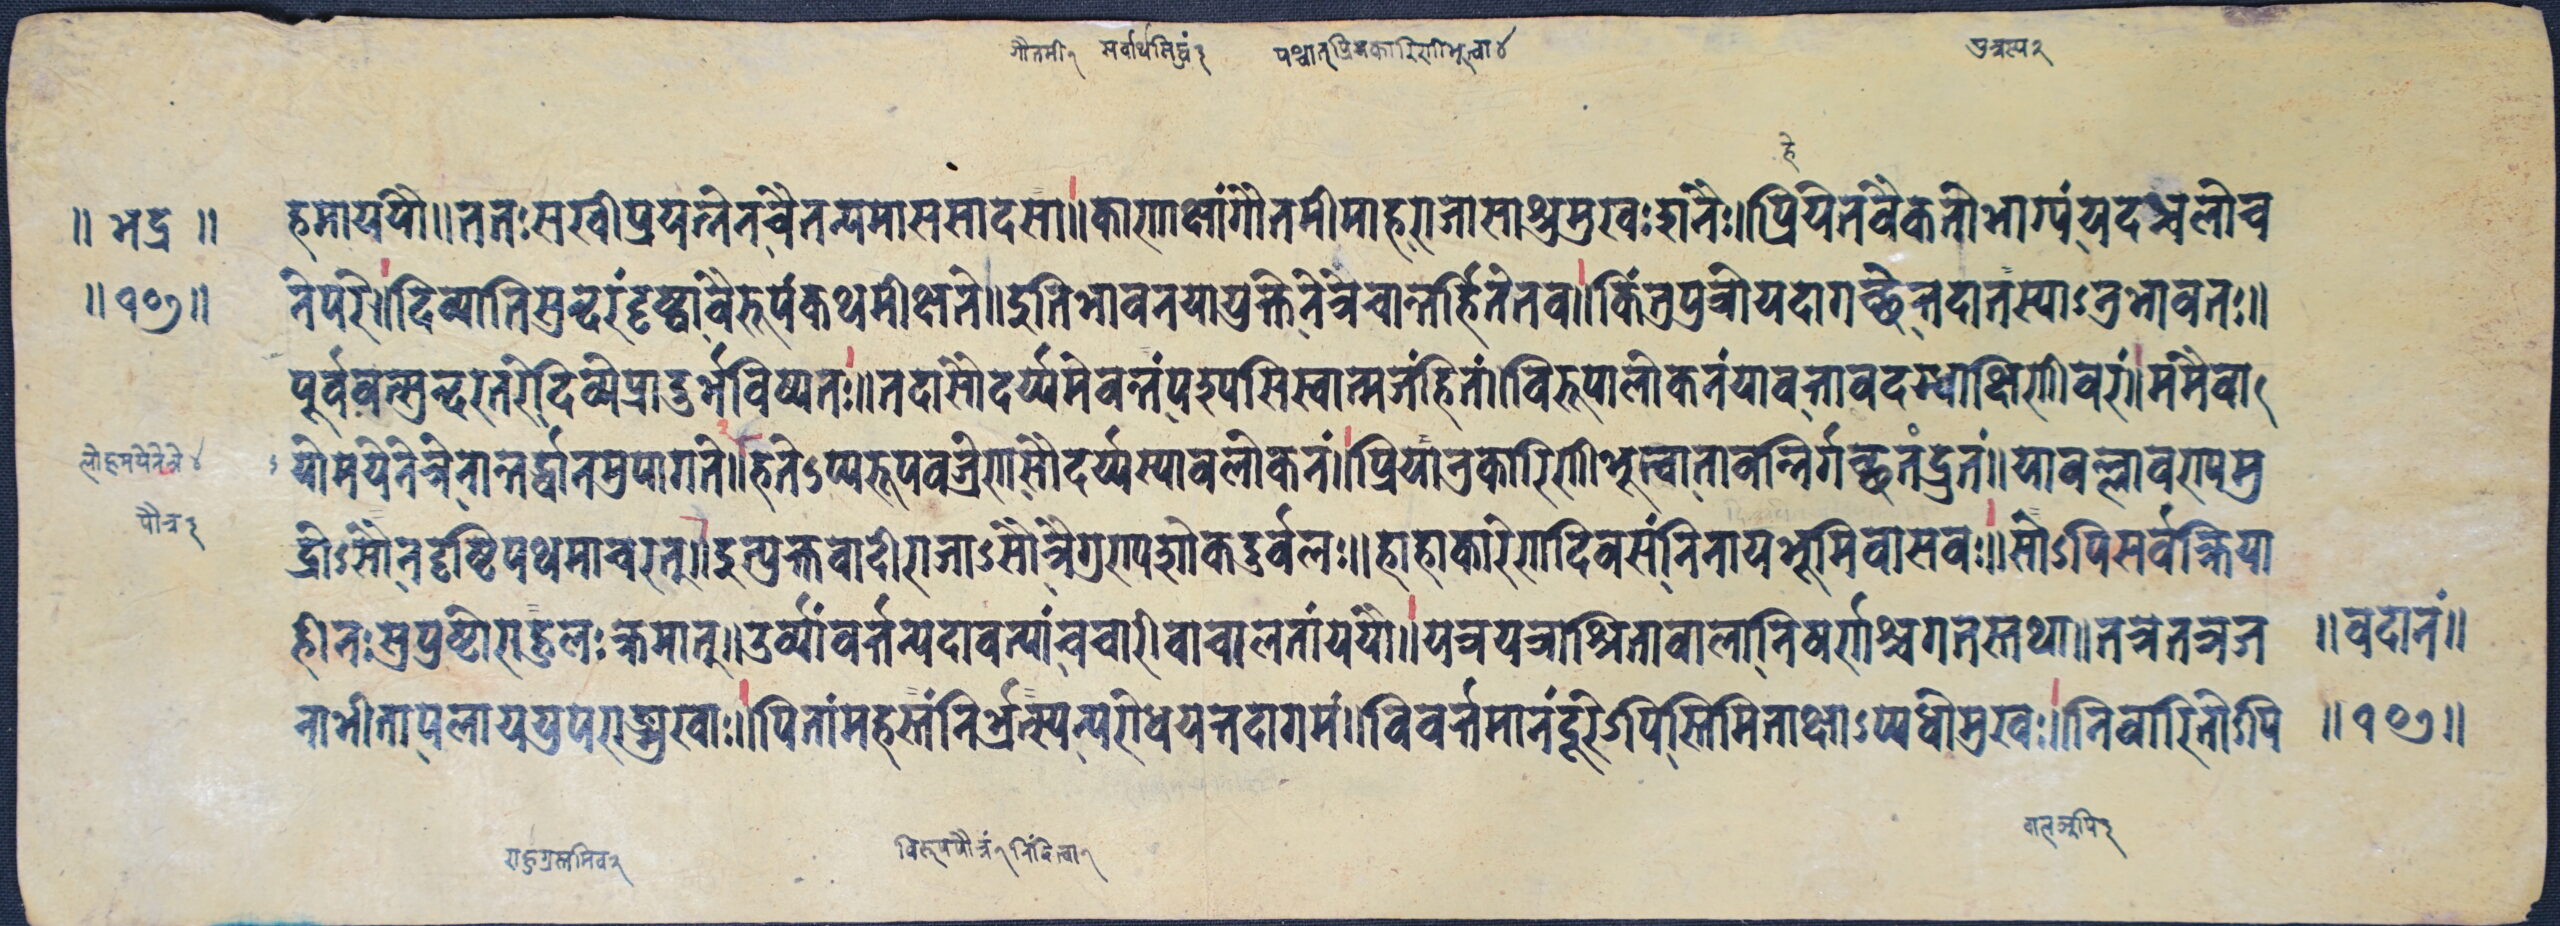 गौतमी१ सर्वार्थसिद्धं३ पश्चात्प्रियकारिणीभूत्वा४ पुत्रस्य२
हे
॥ भद्र ॥ हमाययौ॥ततःसखीप्रयत्नेनचैतन्यमाससादसा॥काणाक्षांगौतमीमाहराजासाश्रुमुखःशनैः॥प्रियेतवैकतोभाग्यंयदञ्चलोच
॥१०७॥ नेपरे॥दिव्यातिसुन्दरंदृष्ट्वावैरूपंकथमीक्षते॥इतिभावनयायुक्तेनेत्रेचान्तर्हितेतव॥किंतुपुत्रोयदागच्छेत्तदातस्याऽनुभावतः॥
पूर्ववत्सुन्दरतरेदिव्येप्रादुर्भविष्यतः॥तदासौदर्य्यमेवन्तंपश्यसिस्वात्मजंहितं॥विरूपालोकनंयावत्तावदस्थाक्षिणीवरं॥ममैवा
लोहमयेनेत्रे४ योमयेनेत्रेनान्तर्द्धानमुपागते॥हितेऽप्यरूपवज्रेणसौदर्य्यस्यावलोकनं॥प्रियानुकारिणीभूत्वातावन्निर्गच्छतंद्रुतं॥यावल्लावण्यमु
पौत्र३ द्रोऽसौनदृष्टिपथमाचरत्॥इत्युक्तवादीराजाऽसौत्रैगुण्यशोकदुर्वलः॥हाहाकारेणदिवसंनिनायभूमिवासवः॥सोऽपिसर्वक्रिया
हीनःसुपुष्टोराहुलःक्रमात्॥उर्व्यांवर्त्तन्यदावन्यांचचारीवाचालतांययौ॥यत्रयत्राश्रितावालानिषर्णाश्चगतस्तथा॥तत्रेतत्रज ॥वदानं॥
नाभीतापलायय्युपराङ्मुखाः॥पितामहस्तंनिर्भर्त्स्यन्परोधयत्तदागमं॥विवर्त्तमानंदूरेऽपिस्तिमिताक्षाऽप्यधोमुखः॥निवारितोऽपि ॥१०७॥
राहुग्रस्तमिव२ विरूपपौत्रं१निंदित्वा१ वालअपि३